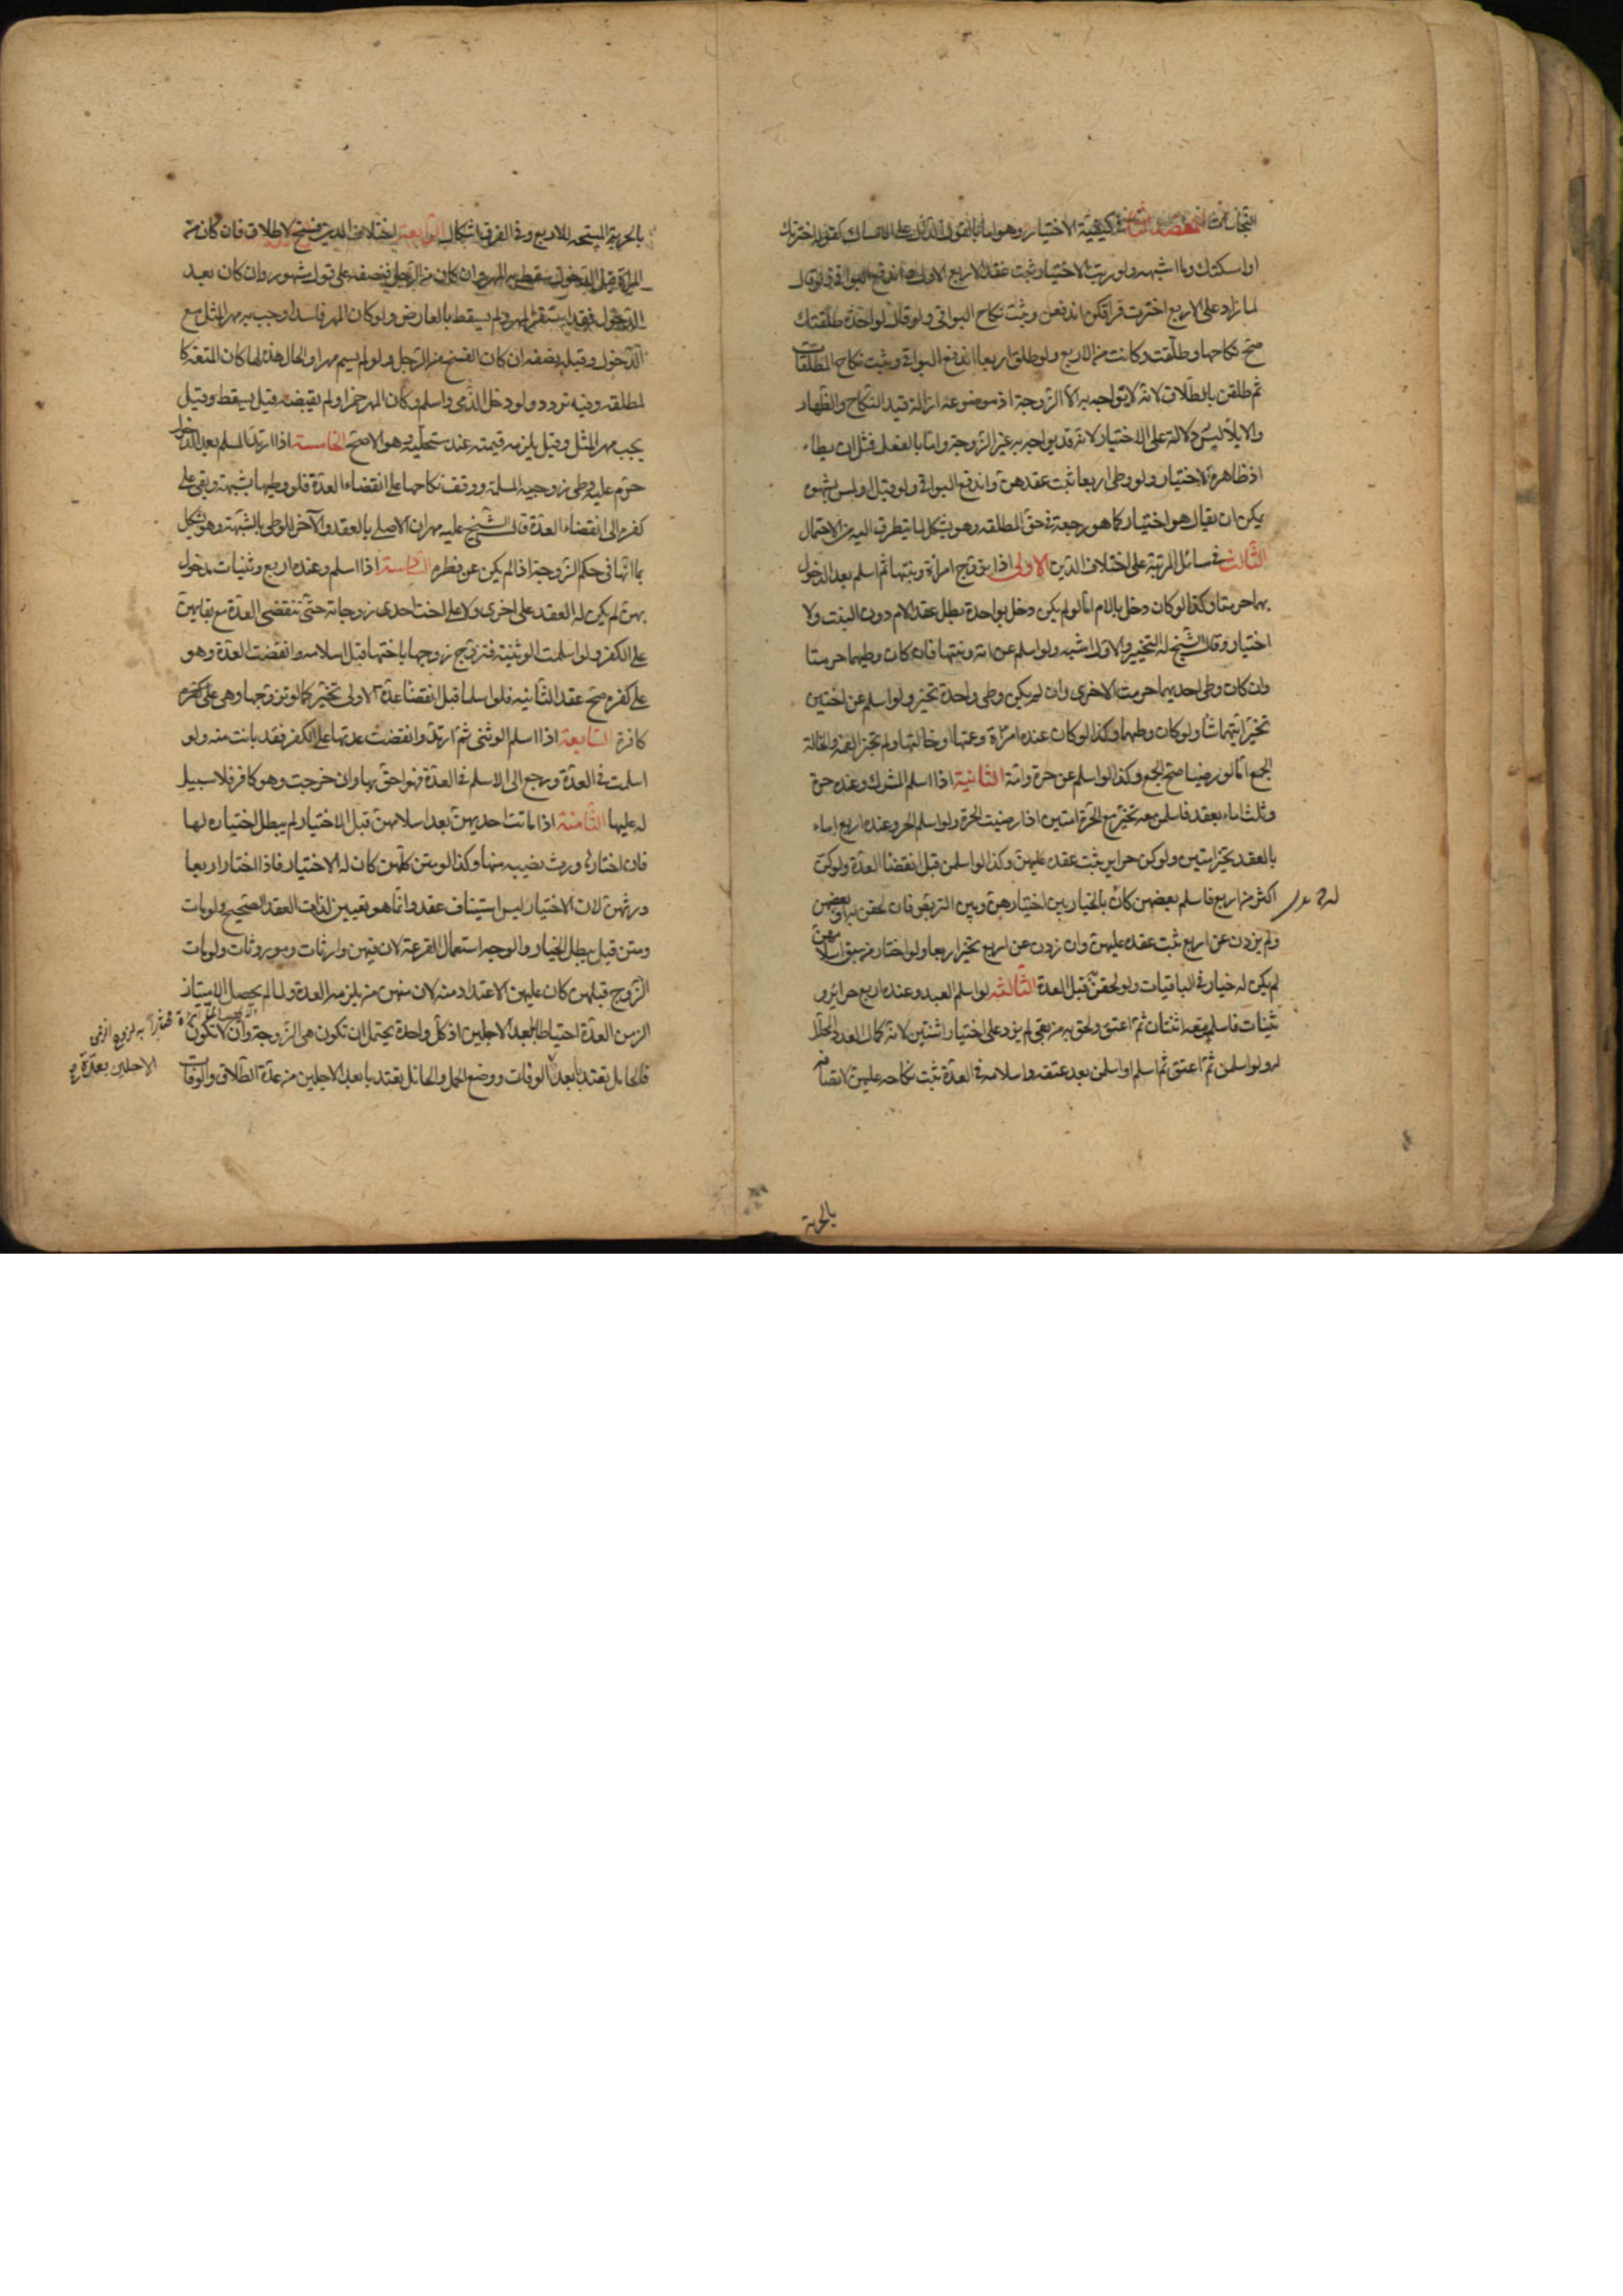 المقصد الثاني في كيفية الاختيار وهو اما بالقول الدال على الامساك كقوله اخترتك
او امسكتك وما اشبهه ولو رتب الاختيار ثبت عقد الاربع الاول واندفع البواقي ولو قال
لما زاد على الاربع اخترت فراقكن اندفعن ويثبت نكاح البواقي ولو قال لواحدة طلقتك
صح نكاحها وطلقت وكانت من الاربع ولو طلق اربعا اندفع البواقي ويثبت نكاح المطلقات
ثم طلقن بالطلاق لانه لا يواجه به الا الزوجة اذ موضوعه ازالة قيد النكاح والظهار
والايلا ليس دلالة على الاختيار لانه قد يواجه به غير الزوجة واما بالفعل فمثل ان يطاء
اذ ظاهره الاختيار ولو وطى اربعا ثبت عقدهن واندفع البواقي ولو قبل او لمس بشهوه
يمكن ان يقال هو اختيار كما هو رجعة في حق المطلقه وهو يشكل لما يتطرق اليه من الاحتمال
الثالث في مسائل المرتبة على اختلاف الدين الاولى اذا تزوج امراة وبنتها ثم اسلم بعد الدخول
بهما حرمتا وكذا لو كان دخل بالام اما لو لم يكن دخل بواحدة بطل عقد الام دون البنت ولا
اختيار وقال الشيخ له التخيير والاول اشبه ولو اسلم عن امة وبنتها فان كان وطيهما حرمتا
وان كان وطى احديهما حرمت الاخرى وان لم يكن وطى واحدة تخير ولو اسلم عن اختين
تخير ايتهما شاء ولو كان وطيهما وكذا لو كان عنده امراة وعمتها او خالتها ولم تجز العمه والخالة
الجمع اما لو رضيتا صح الجمع وكذا لو اسلم عن حرة وامة الثانية اذا اسلم المشرك وعنده حرة
وثلث اماء بعقد فاسلمن معه تخير مع الحرة امتين اذا رضيت الحرة ولو اسلم الحر وعنده اربع اماء
بالعقد تخير امتين ولو كن حراير ثبت عقده عليهن وكذا لو اسلمن قبل انقضا العدة ولو كن
اكثر من اربع فاسلم بعضهن كان بالخيار بين اختيارهن وبين التربص فان لحقن به او بعضهن
ولم يزدن عن اربع ثبت عقده عليهن وان زدن عن اربع تخير اربعا ولو اختار من سبق اسلامهن
لم يكن له خيار في الباقيات ولو لحقن قبل العدة الثالثه لو اسلم العبد وعنده اربع حراير و
ثنيات فاسلم معه اثنتان ثم اعتق ولحق به من بقى لم يزد على اختيار اثنتين لانه كمال العدد المحلل
له ولو اسلمن ثم اعتق ثم اسلم او اسلمن بعد عتقه واسلامه في العدة ثبت نكاحه عليهن لاتصافه
بالحرية
بالحرية المبيحه للاربع وفي الفرق اشكال الرابعة اختلاف الدين فسخ لا طلاق فان كان من
المراة قبل الدخول سقط به المهر وان كان من الرجل فنصفه على قول مشهور وان كان بعد
الدخول فقد استقر المهر ولم يسقط بالعارض ولو كان المهر فاسدا وجب به مهر المثل مع
الدخول وقبله نصفه ان كان الفسخ من الرجل ولو لم يسم مهرا والحال هذه لها كان المتعة كا
لمطلقه وفيه تردد ولو دخل الذمى واسلم وكان المهر خمرا ولم تقبضه قيل يسقط وقيل
يجب مهر المثل وقيل يلزمه قيمته عند مستحليه وهو الاصح الخامسة اذا ارتد المسلم بعد الدخول
حرم عليه وطى زوجيه المسلمة ووقف نكاحها على انقضاء العدة فلو وطيها بشبهة وبقى على
كفره الى انقضاء العدة قال الشيخ عليه مهران الاصلى بالعقد والآخر للوطى بالشبهة وهو يشكل
بما انها في حكم الزوجة اذا لم يكن عن فطره السادسة اذا اسلم وعنده اربع وثنيات مدخول
بهن لم يكن له العقد على اخرى ولا على اخت احدى زوجاته حتى تنقضى العدة مع بقايهن
على الكفر ولو اسلمت الوثنية فتزوج زوجها باختها قبل اسلامه وانقضت العدة وهو
على كفره صح عقد الثانيه فلو اسلما قبل انقضا عدة الاولى تخير كما لو تزوجها وهى على كفره
كافرة السابعة اذا اسلم الوثنى ثم ارتد وانقضت عدتها على الكفر فقد بانت منه ولو
اسلمت في العدة ورجع الى الاسلم في العدة فهو احق بها وان خرجت وهو كافر فلا سبيل
له عليها الثامنة اذا ماتت احديهن بعد اسلامهن قبل الاختيار لم يبطل اختياره لها
فان اختارها ورث نصيبه منها وكذا لو متن كلهن كان له الاختيار فاذا اختار اربعا
ورثهن لان الاختيار ليس استيناف عقد وانما هو تعيين لذات العقد الصحيح ولو مات
ومتن قيل يبطل الخيار والوجه استعمال القرعة لان فيهن وارثات وموروثات ولو مات
الزوج قبلهن كان عليهن الاعتداد منه لان منهن من يلزمه العدة ولما لم يحصل الامتياز
الزمن العدة احتياطا بابعد الاجلين اذ كل واحدة يحتمل ان تكون هى الزوجة وان لا تكون
فالحامل تعتد بابعد الوفات ووضع الحمل والحائل تعتد بابعد الاجلين من عدة الطلاق والوفات